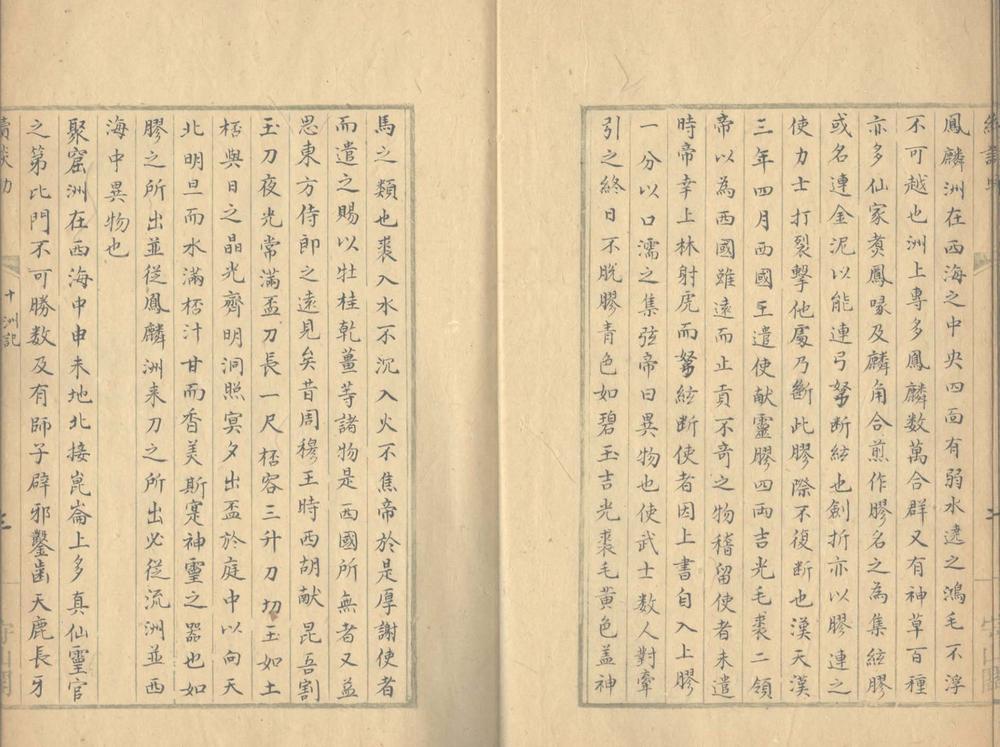 鳳麟洲在西海之中央四面有弱水遶之鴻毛不浮
不可越也洲上專多鳳麟數萬合群又有神草百種
亦多仙家煑鳳喙及麟角合煎作膠名之為集絃膠
或名連金泥以能連弓弩断絃也劍折亦以膠連之
使力士打裂擊他處乃斷此膠際不復断也漢天漢
三年四月西國王遣使献靈膠四兩吉光毛裘二領
帝以為西國雖遠而止貢不奇之物稽留使者未遣
時帝幸上林射虎而弩絃断使者因上書自入上膠
一分以口濡之集弦帝曰異物也使武士数人對牽
引之終日不脱膠青色如碧玉吉光裘毛黄色盖神
馬之類也裘入水不沉入火不焦帝於是厚謝使者
而遣之賜以牡桂乾薑等諸物是西國所無者又益
思東方侍郎之遠見矣昔周穆王時西胡献昆吾割
玉刀夜光常滿盃刀長一尺桮容三升刀切玉如土
桮與日之晶光齊明洞照冥夕出盃於庭中以向天
北明旦而水滿桮汁甘而香美斯寔神靈之器也如
膠之所出並従鳳麟洲来刀之所出必従流洲並西
海中異物也
聚窟洲在西海中申未地北接崑崙上多真仙靈官
之第比門不可勝数及有師子辟邪鑿齒天鹿長牙
十洲記